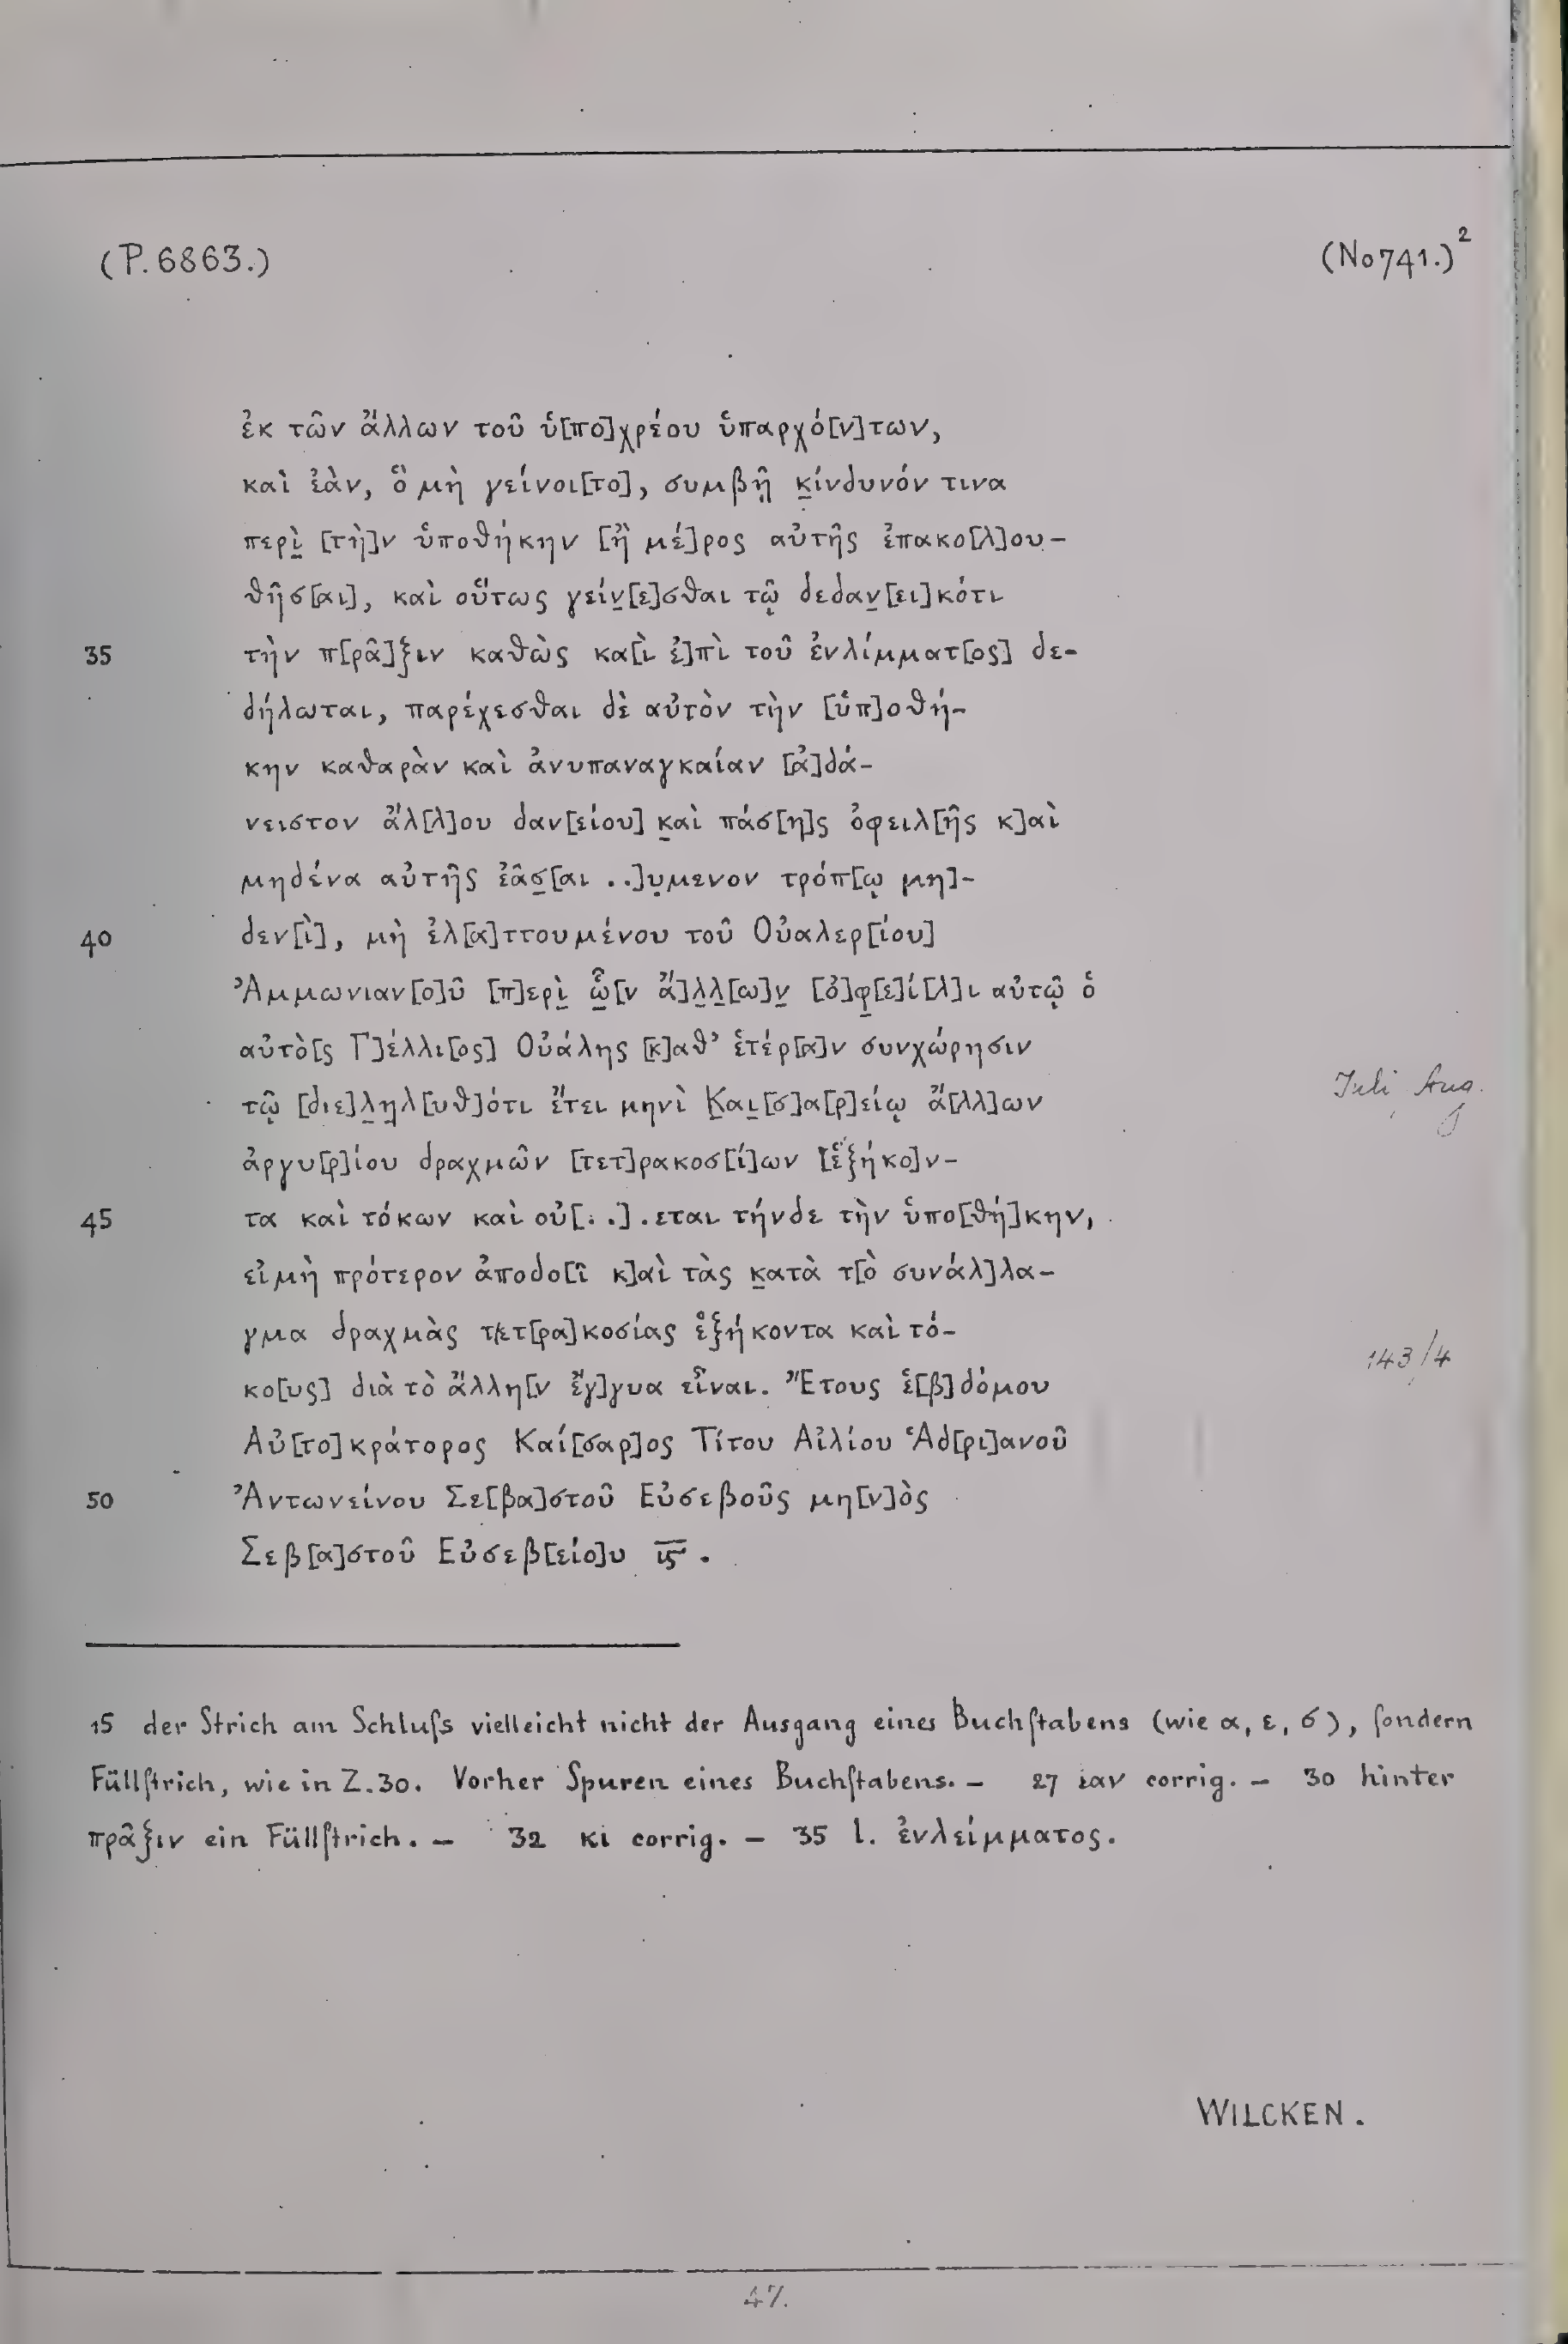 (P. 6863.) (No 741.)²
ἐκ τῶν ἄλλων τοῦ ὑ[πο]χρέου ὑπαρχό[ν]των,
καὶ ἐάν, ὃ μὴ γείνοι[το], συμβῇ κ̲ίνδυνόν τινα
περὶ̲ [τὴ]ν ὑποθήκην [ἢ μέ]ρος αὐτῆς ἐπακο[λ]ου-
θῆσ[αι], καὶ οὕτως γείν̲[ε]σθαι τῷ δεδαν̲[ει]κότι
35 τὴν π[ρᾶ]ξιν καθὼς κα[ὶ ἐ]πὶ τοῦ ἐνλίμματ[ος] δε-
δήλωται, παρέχεσθαι δὲ αὐτὸν τὴν [ὑπ]οθή-
κην καθαρὰν καὶ ἀνυπαναγκαίαν [ἀ]δά-
νειστον ἄλ[λ]ου δαν[είου] κ̲αὶ πάσ[η]ς ὀφειλ[ῆς κ]αὶ
μηδένα αὐτῆς ἐᾶσ̲[αι ..]υ̣μενον τρόπ[ῳ μη]-
40 δεν[ί], μὴ ἐλ[α]ττουμένου τοῦ Οὐαλερ[ίου]
Ἀμμωνιαν[ο]ῦ [π]ερὶ̲ ὧ̲[ν ἄ]λ̲λ̲[ω]ν̲ [ὀ]φ̲[ε]ί[λ]ι αὐτῷ ὁ
αὐτὸ[ς Γ]έλλι[ος] Οὐάλης [κ]αθ’ ἑτέρ[α]ν συνχώρησιν
τῷ [διε]λ̲η̲λ[υθ]ότι ἔτει μηνὶ Κ̲αι̲[σ]α[ρ]είῳ ἄ[λλ]ων
Juli Aug.
ἀργυ[ρ]ίου δραχμῶν [τετ]ρακοσ[ί]ων [ἑξήκο]ν-
45 τα καὶ τόκων καὶ οὐ[..].εται τήνδε τὴν ὑπο[θή]κην,
εἰ μὴ πρότερον ἀποδο[ῖ κ]αὶ τὰς κ̲ατὰ τ[ὸ συνάλ]λα-
γμα δραχμὰς τετ[ρα]κοσίας ἑξήκοντα καὶ τό-
143/4
κο[υς] διὰ τὸ ἄλλη[ν ἔγ]γυα εἶναι. Ἔτους ἑ[β]δόμου
Αὐ[το]κράτορος Καί[σαρ]ος Τίτου Αἰλίου Ἁδ[ρι]ανοῦ
50 Ἀντωνείνου Σε[βα]στοῦ Εὐσεβοῦς μη[ν]ὸς
Σεβ[α]στοῦ Εὐσεβ[είο]υ ι̅ϛ̅.
15 der Strich am Schluſs vielleicht nicht der Ausgang eines Buchſtabens (wie α, ε, σ), ſondern
Füllſtrich, wie in Z. 30. Vorher Spuren eines Buchſtabens. — 27 εαν corrig. — 30 hinter
πρᾶξιν ein Füllſtrich. — 32 κι corrig. — 35 l. ἐνλείμματος.
WILCKEN.
47.